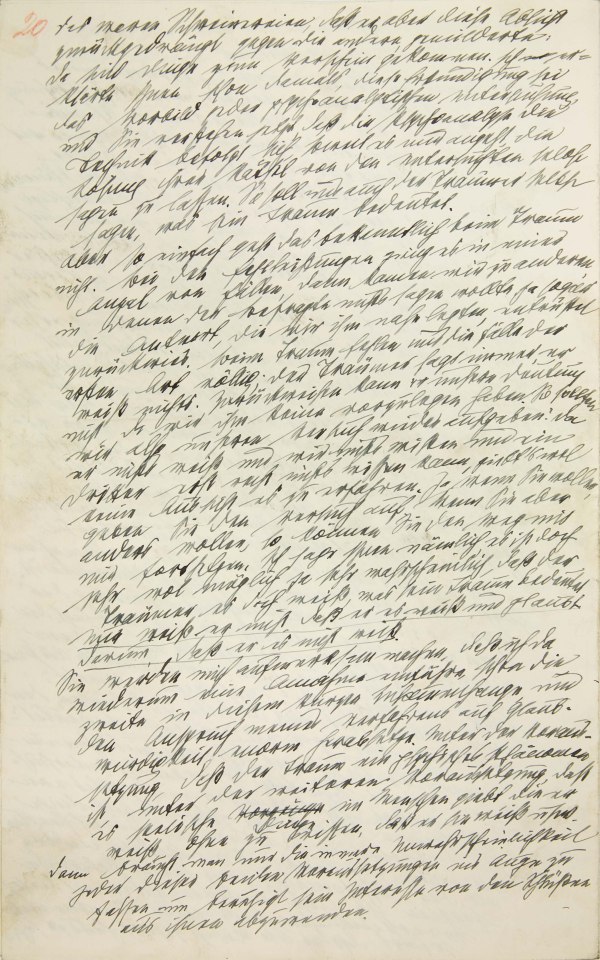 20
das waren Schweinereien, daß er aber diese Absicht
zurückgedrängt gegen die andere gemilderte:
da sind Dinge zum Vorschwein gekommen. Ich er-
klärte Ihnen schon damals, diese Erkundigung sei
das Vorbild jeder psychoanalytischen Untersuchung
und Sie verstehen jetzt, daß die Psychoanalyse die
Technik befolgt sich soweit es nur angeht, die
Lösung ihrer Rätsel von den Untersuchten selbst
sagen zu lassen. So soll uns auch der Träumer selbst
sagen, was sein Traum bedeutet.
Aber so einfach geht das bekanntlich beim Traum
nicht. Bei den Fehlleistungen ging es in einer
Anzal von Fällen, dann kamen wir zu anderen
in denen der Befragte nichts sagen wollte, ja sogar
die Antwort, die wir ihm nahe legten entrüstet
zurückwies. Beim Traum fehlen uns die Fälle der
ersten Art völlig; der Träumer sagt immer er
weiß nichts. Zurückweisen kann er unsere Deutung
nicht da wir ihm keine vorzulegen haben. So sollten
wir also unseren Versuch wieder aufgeben? Da
er nichts weiß und wir nichts wissen und ein
dritter erst recht nichts wissen kann, giebts wol
keine Aussicht es zu erfahren. Ja, wenn Sie wollen,
geben Sie den Versuch auf. Wenn Sie aber
anders wollen, so können Sie den Weg mit
mir fortsetzen. Ich sage Ihnen nämlich es ist doch
sehr wol möglich ja sehr wahrscheinlich daß der
Träumer es doch weiß, was sein Traum bedeutet
nur weiß er nicht, daß er es weiß und glaubt
darum, daß er es nicht weiß.
Sie werden mich aufmerksam machen, daß ich da
wiederum eine Annahme einführe, schon die
zweite in diesem kurzen Zusammenhange und
den Anspruch meines Verfahrens auf Glaub-
würdigkeit enorm herabsetze. Unter der Voraus-
setzung, daß der Traum ein psychisches Phänomen
ist, unter der weiteren Voraussetzung, daß
es seelische Vorgänge Dinge im Menschen giebt die er
weiß ohne zu wissen, daß er sie weiß usw.
Dann braucht man nur die innere Unwahrscheinlichkeit
jeder dieser beiden Voraussetzungen ins Auge zu
fassen um beruhigt sein Interesse von den Schlüssen
aus ihnen abzuwenden.